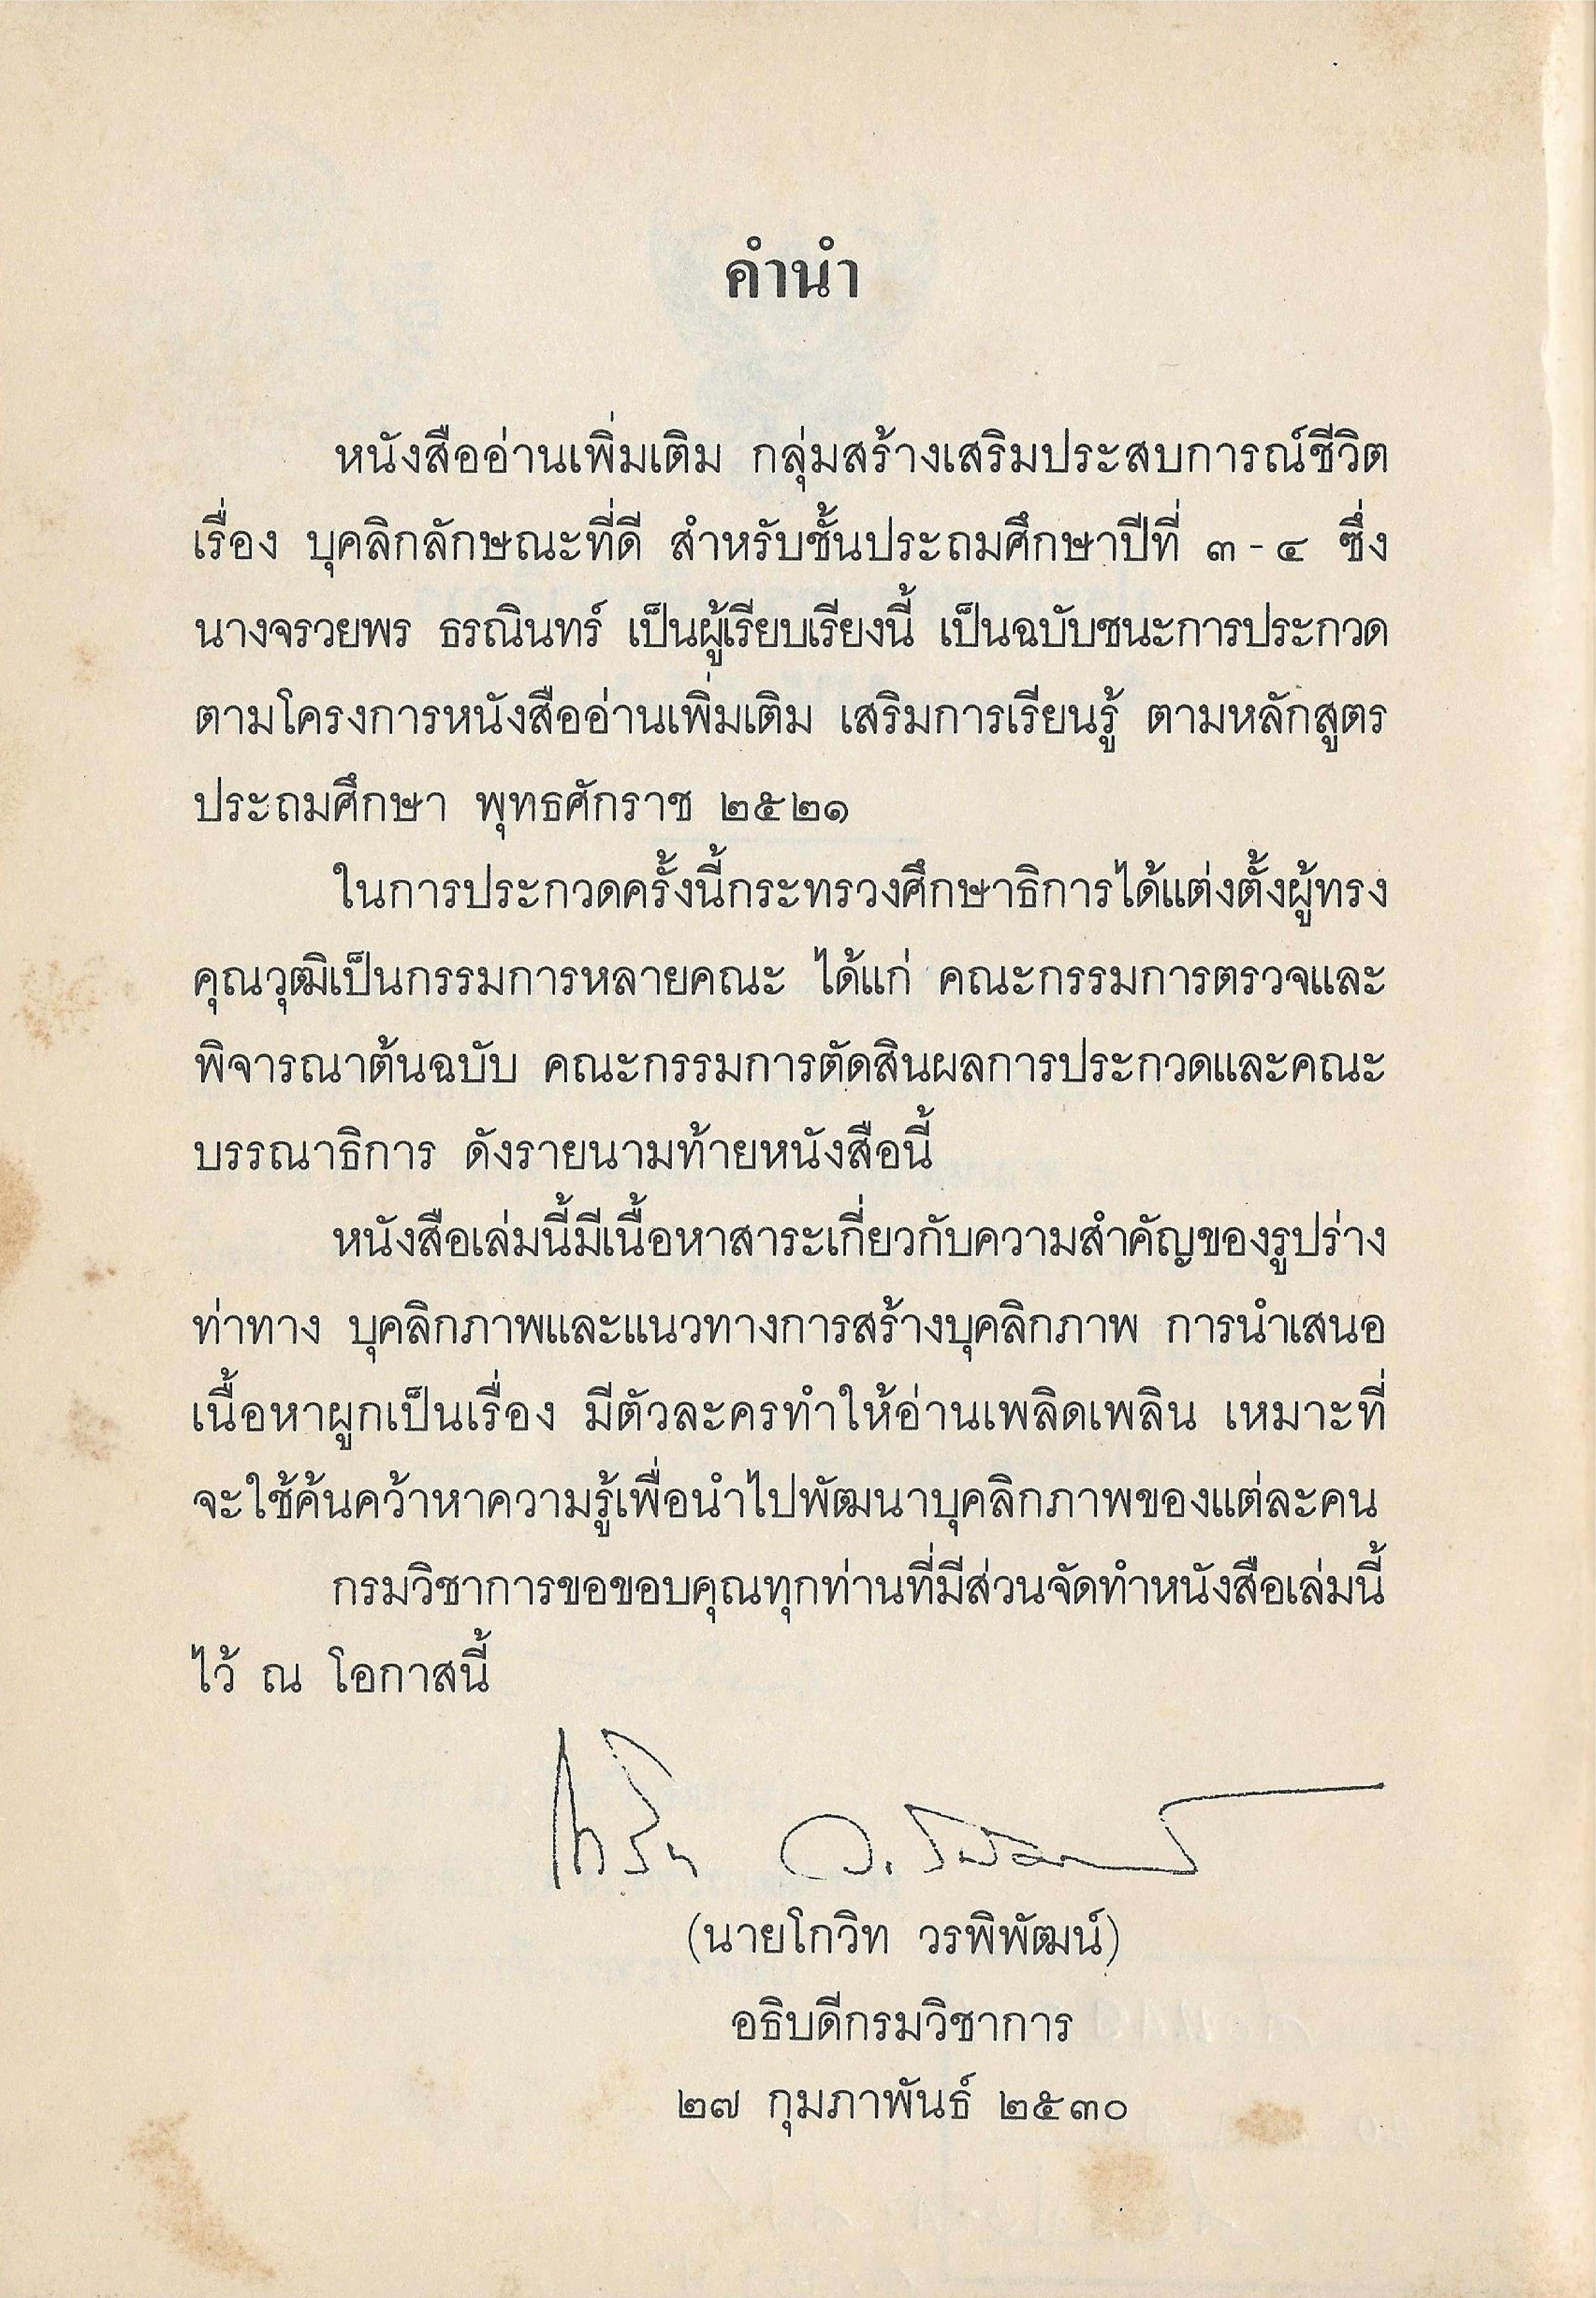 คำนำ
หนังสืออ่านเพิ่มเติม กลุ่มสร้างเสริมประสบการณ์ชีวิต
เรื่อง บุคลิกลักษณะที่ดี สำหรับชั้นประถมศึกษาปีที่ ๓ - ๔ ซึ่ง
นางจรวยพร ธรณินทร์ เป็นผู้เรียบเรียงนี้ เป็นฉบับชนะการประกวด
ตามโครงการหนังสืออ่านเพิ่มเติม เสริมการเรียนรู้ ตามหลักสูตร
ประถมศึกษา พุทธศักราช ๒๕๒๑
ในการประกวดครั้งนี้กระทรวงศึกษาธิการได้แต่งตั้งผู้ทรง
คุณวุฒิเป็นกรรมการหลายคณะ ได้แก่ คณะกรรมการตรวจและ
พิจารณาต้นฉบับ คณะกรรมการตัดสินผลการประกวดและคณะ
บรรณาธิการ ดังรายนามท้ายหนังสือนี้
หนังสือเล่มนี้มีเนื้อหาสาระเกี่ยวกับความสำคัญของรูปร่าง
ท่าทาง บุคลิกภาพและแนวทางการสร้างบุคลิกภาพ การนำเสนอ
เนื้อหาผูกเป็นเรื่อง มีตัวละครทำให้อ่านเพลิดเพลิน เหมาะที่
จะใช้ค้นคว้าหาความรู้เพื่อนำไปพัฒนาบุคลิกภาพของแต่ละคน
กรมวิชาการขอขอบคุณทุกท่านที่มีส่วนจัดทำหนังสือเล่มนี้
ไว้ ณ โอกาสนี้
(นายโกวิท วรพิพัฒน์)
อธิบดีกรมวิชาการ
๒๗ กุมภาพันธ์ ๒๕๓๐